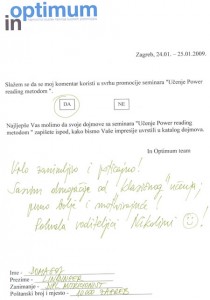 in optimum
Zagreb, 24.01. – 25.01.2009.
Slažem se da se moj komentar koristi u svrhu promocije seminara "Učenje Power
reading metodom ".
DA NE
Najljepše Vas molimo da svoje dojmove sa seminara "Učenje Power reading
metodom " zapišete ispod, kako bismo Vaše impresije uvrstili u katalog dojmova.
In Optimum team
Vrlo zanimljivo i poticajno!
Sasvim drugačije od "klasičnog" učenja,
puno bolje i motivirajuće!
Pohvala voditeljici Nikolini!
Ime:
Prezime:
Zanimanje:
Poštanski broj i mjesto: 10000 ZAGREB